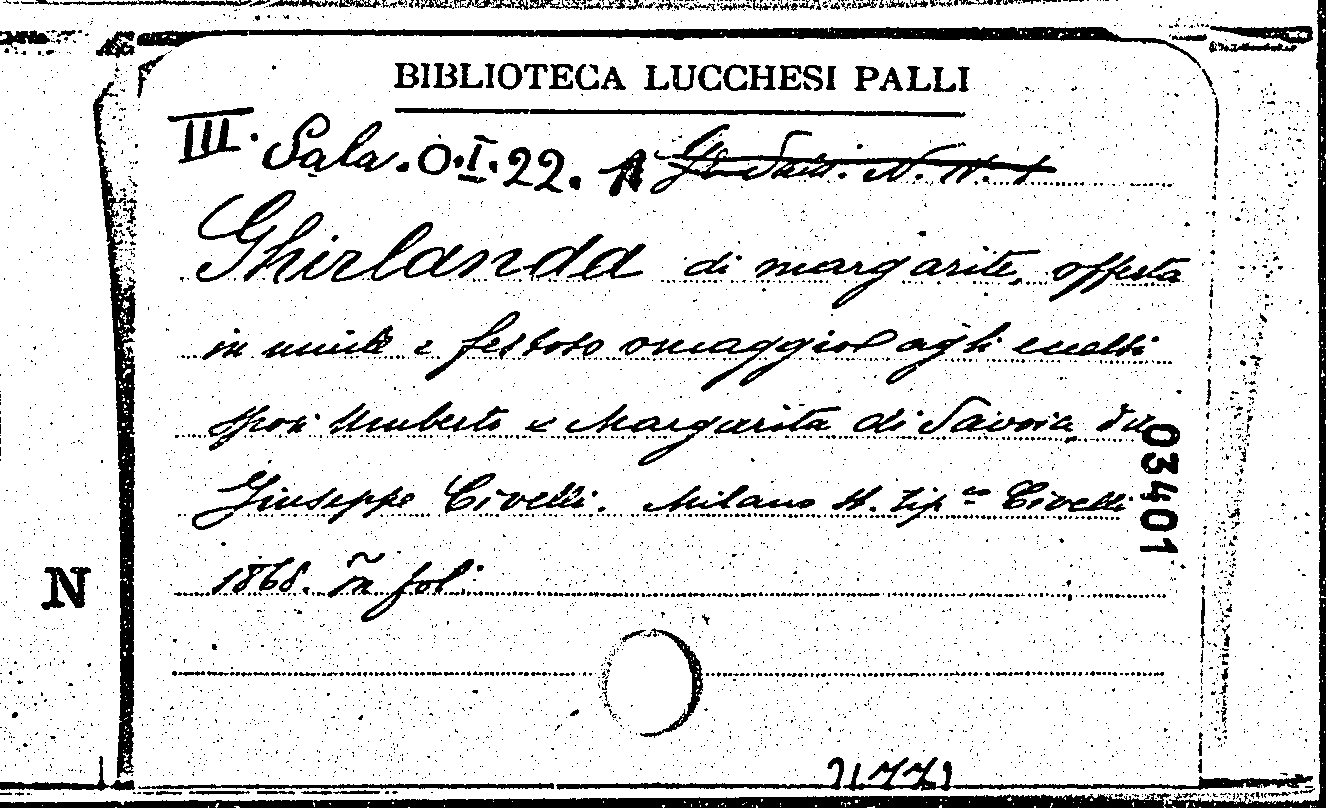 BIBLIOTECA LUCCHESI PALLI
III. Sala. O.I.22. A
Ghirlanda di margarite, offerta
in umile e festoso omaggio agli eccelsi
sposi Umberto e Margarita di Savoia, da
Giuseppe Civelli. Milano St. tip.co Civelli
1868. in fol:
03401
N